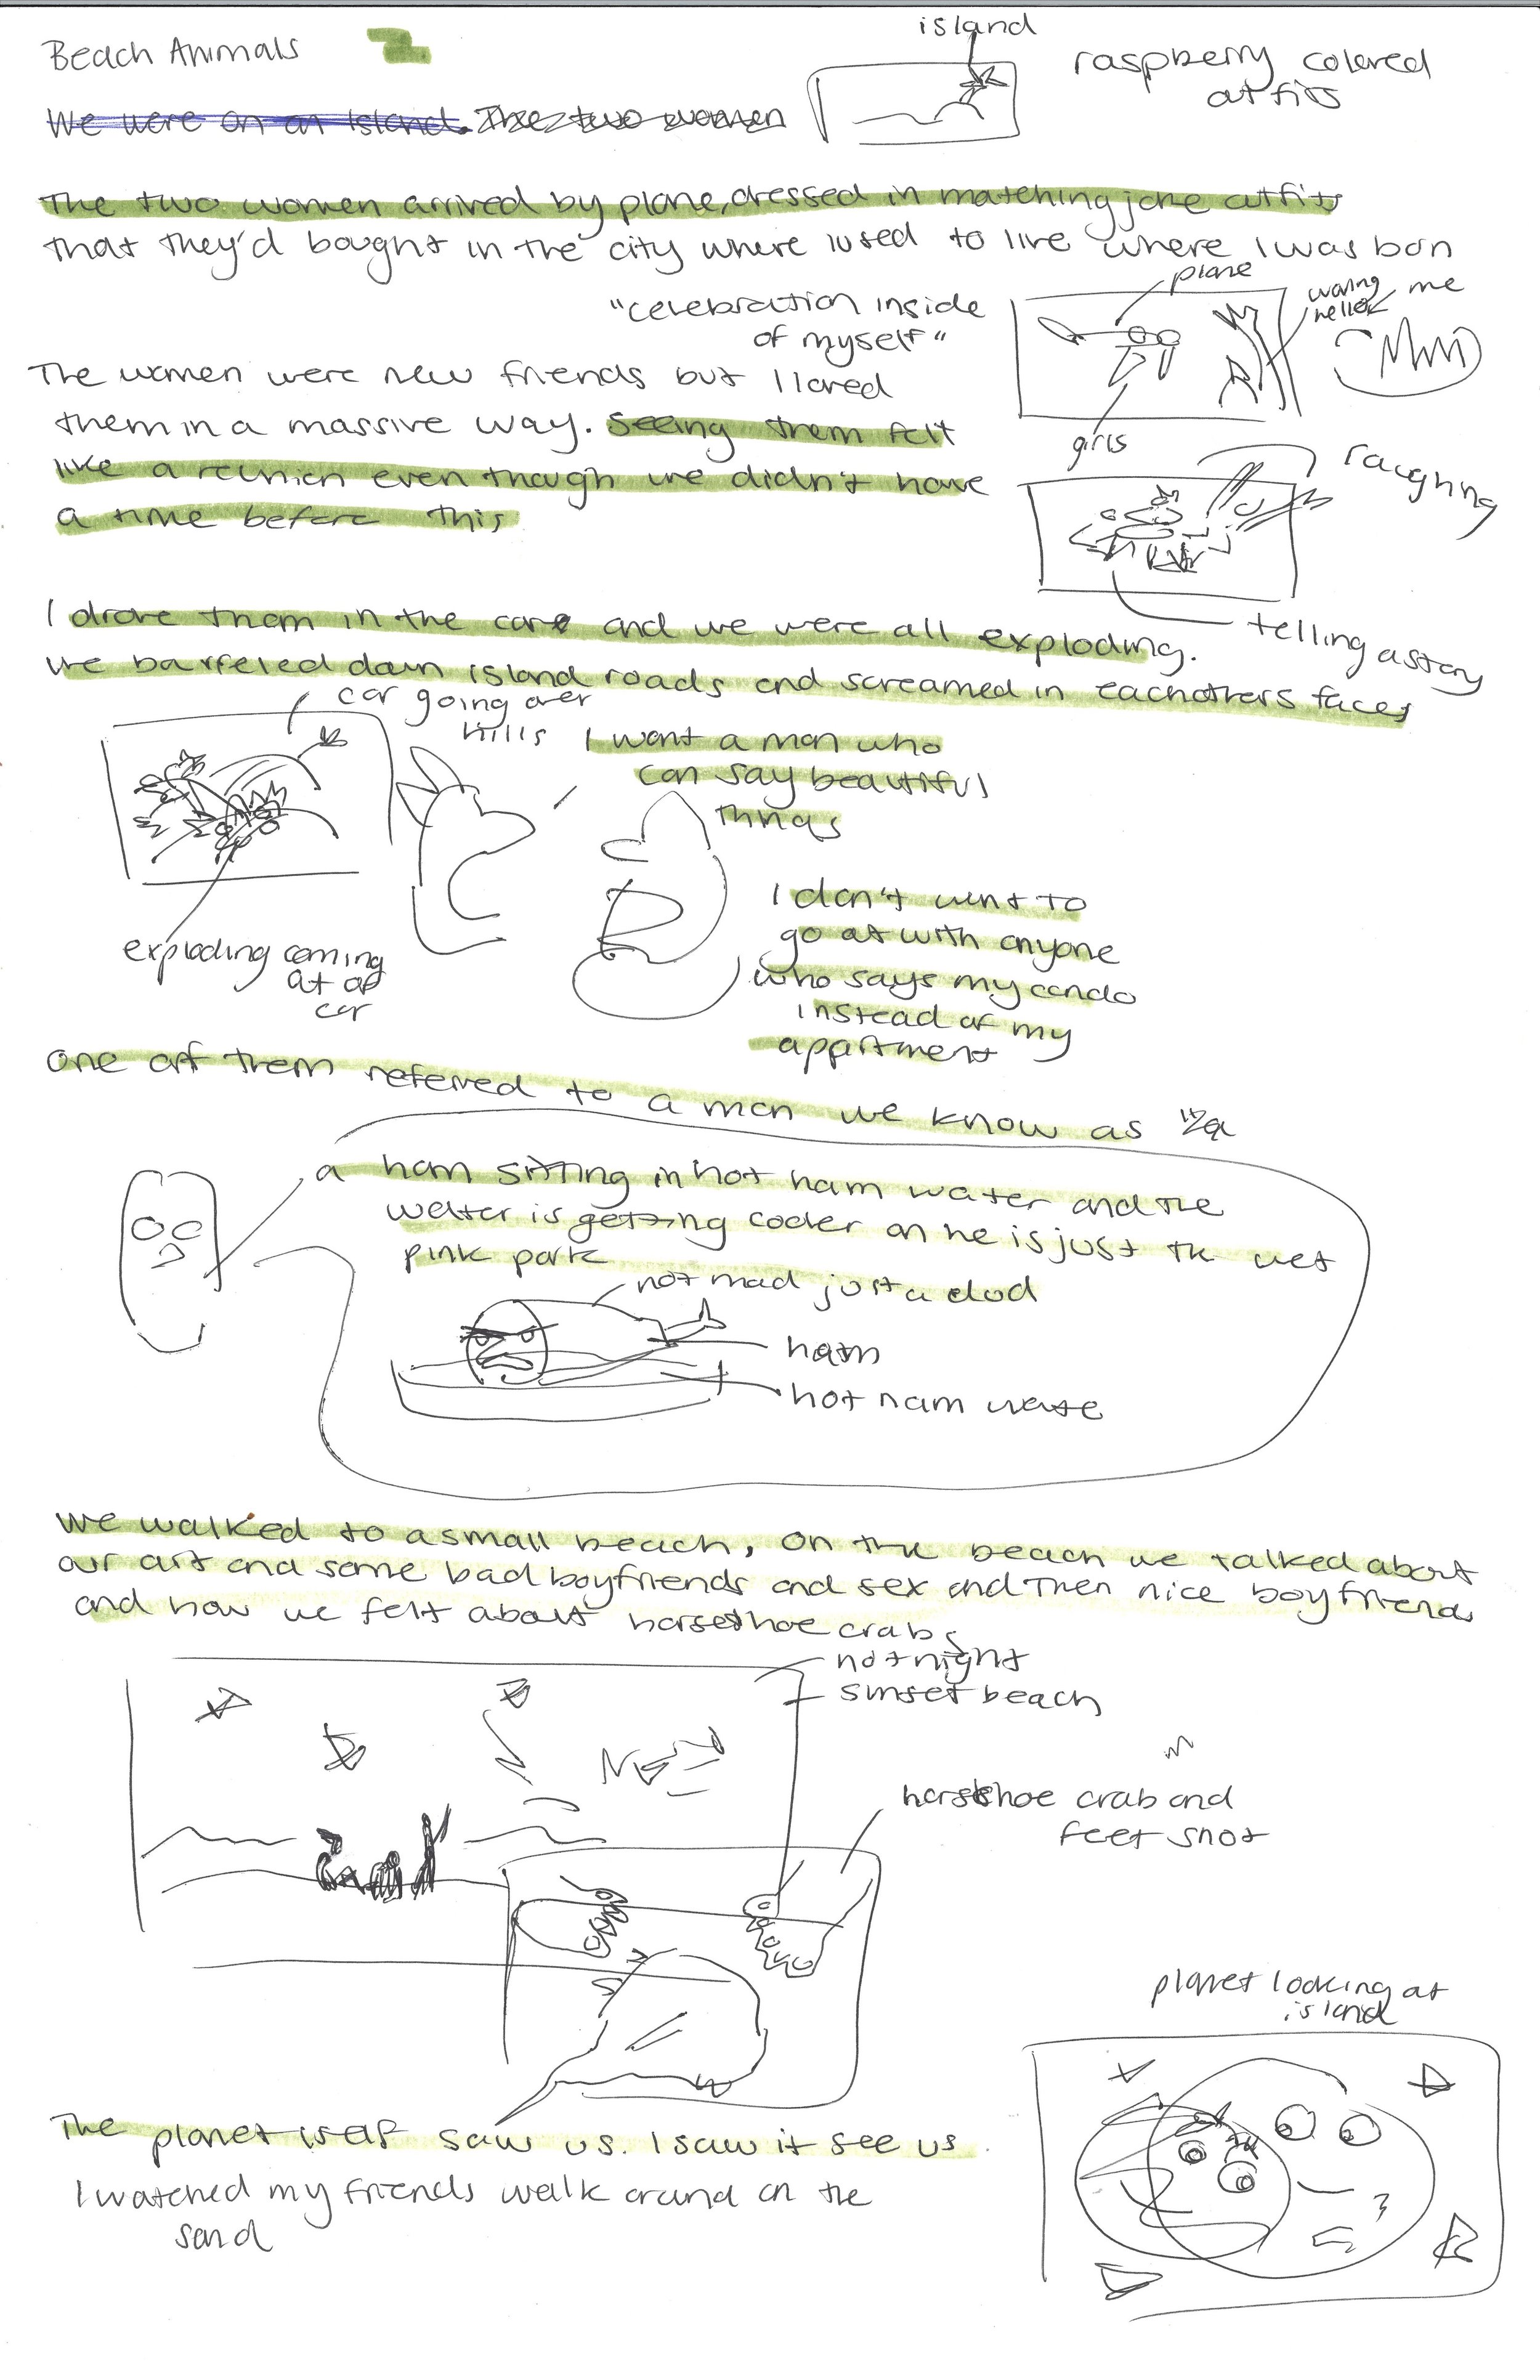 Beach Animals
island
raspberry colored
outfits
We were on an Island. The two women
The two women arrived by plane, dressed in matching joke outfits
that they'd bought in the city where I used to live where I was born
plane
waving
hello
me
"celebration inside
of myself"
girls
The women were new friends but I loved
them in a massive way. Seeing them felt
like a reunion even though we didn't have
a time before this
laughing
telling a story
I drove them in the car and we were all exploding.
We barreled down island roads and screamed in eachothers faces
car going over
hills
I want a man who
can say beautiful
things
exploding coming
out of
car
I don't want to
go out with anyone
who says my condo
instead of my
appartment
One of them referred to a man we know as
a ham sitting in hot ham water and the
water is getting cooler an he is just the wet
pink pork
not mad just a dud
ham
hot ham wate
We walked to a small beach, on the beach we talked about
our art and some bad boyfriends and sex and then nice boyfriends
and how we felt about horseshoe crabs
not night
sunset beach
horseshoe crab and
feet shot
planet looking at
island
The planet itself saw us. I saw it see us
I watched my friends walk around on the
sand